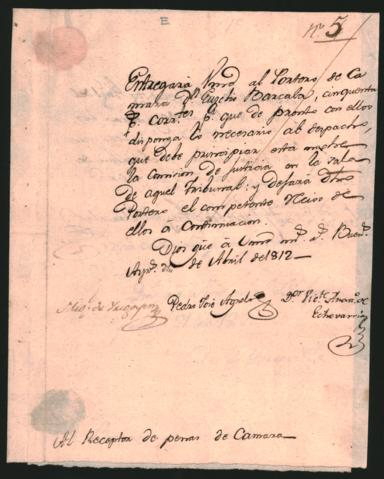 E
Nº 5
Entregará Vmd al Portero de Ca
mara Dn Eugenio Barcala, cinquenta
p. corr.tes p.a que de pronto con ellos
disponga lo necesario al despacho,
que debe principiar esta
la Comision de Justicia en la sala
de aquel tribunal: y dexará dho
Portero el competente Recivo de
ellos á continuacion.
Dios gue á Vmd ms. as. Buens.
Ays. de Abril de 1812
Pedro José Agrelo
Echevarria
Al Receptor de penas de Camara